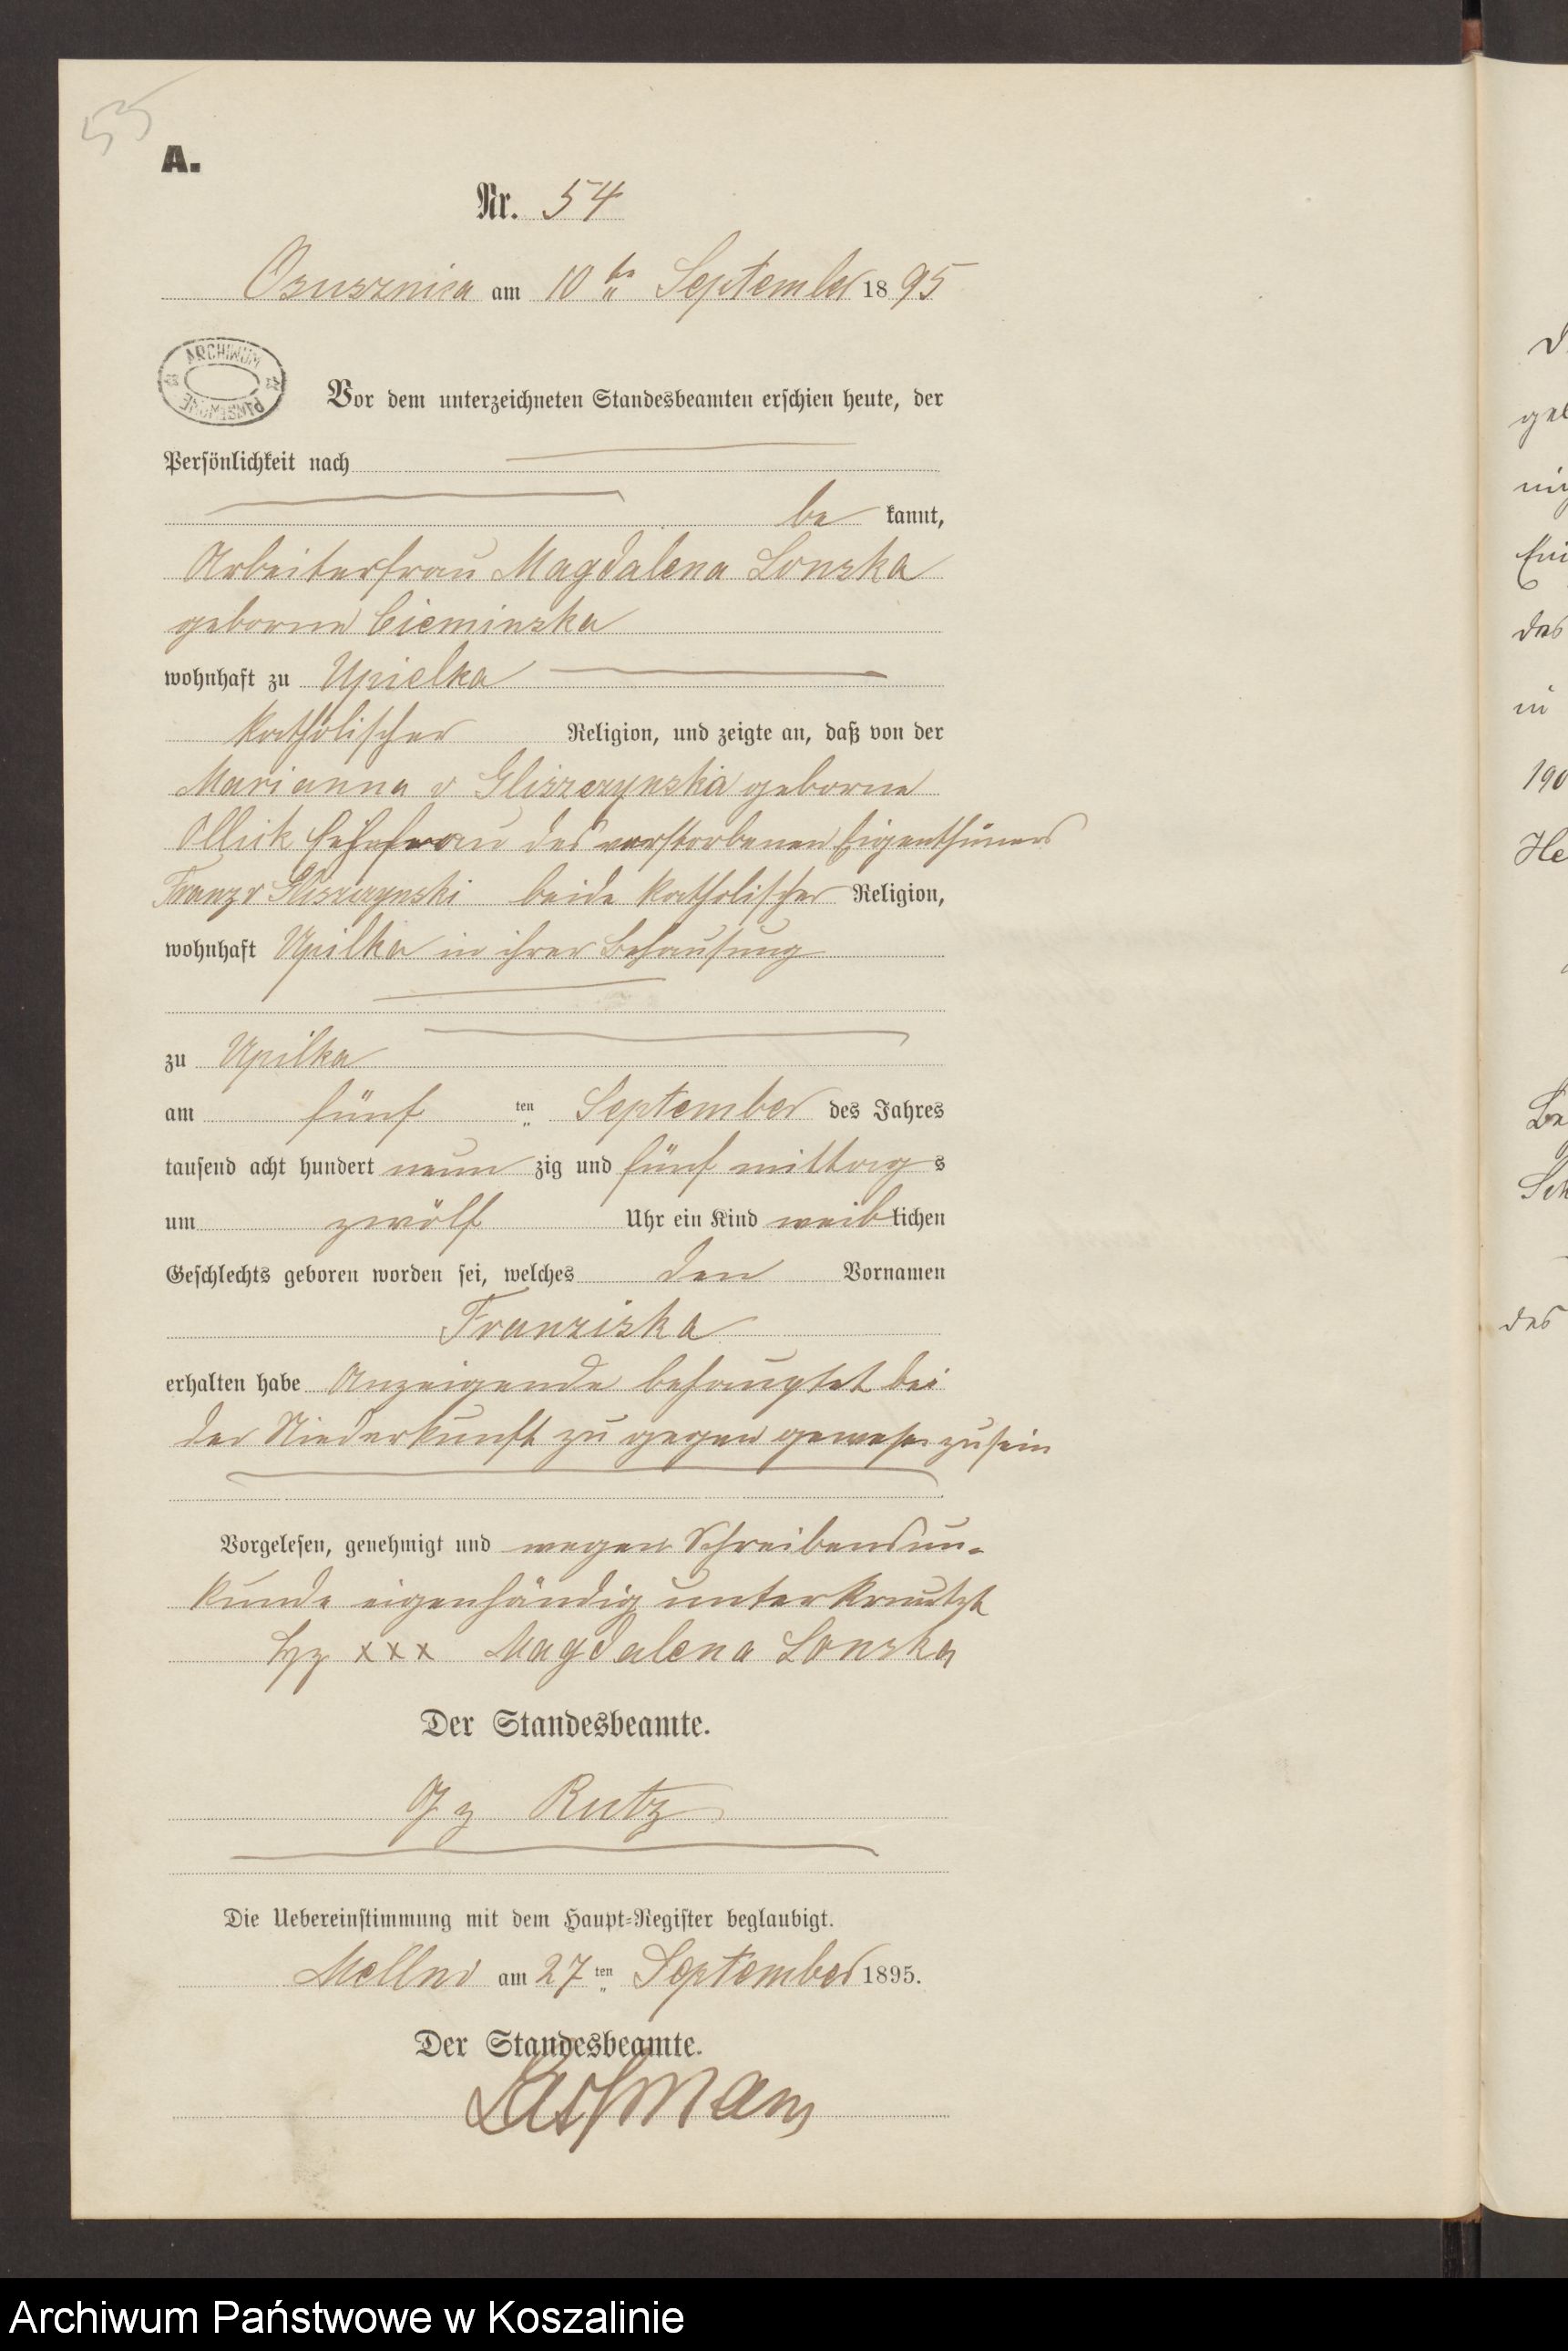 55
A.
Nr. 54
Osusznica am 10ten September 1895
ARCHIWUM
PAŃSTWOWE
Vor dem unterzeichneten Standesbeamten erschien heute, der
Persönlichkeit nach
be kannt,
Arbeiterfrau Magdalena Lonska
geborne Cieminska
wohnhaft zu Upielka
katholischer Religion, und zeigte an, daß von der
Marianna v Gliszczynska geborne
Ollick Ehefrau des verstorbenen Eigenthümers
Franz v Gliszczynski beide katholischer Religion,
wohnhaft Upilka in ihrer Behausung
zu Upilka
am fünf ten September des Jahres
tausend acht hundert neun zig und fünf mittag s
um zwölf Uhr ein Kind weib lichen
Geschlechts geboren worden sei, welches den Vornamen
Franziska
erhalten habe Anzeigende behauptet bei
der Niederkunft zu gegen gewesen zu sein
Vorgelesen, genehmigt und wegen Schreibensun-
kunde eigenhändig unterkreutzt
Hz xxx Magdalena Lonska
Der Standesbeamte.
Gz Rutz
Die Uebereinstimmung mit dem Haupt-Register beglaubigt.
Mellno am 27ten September 1895.
Der Standesbeamte.
das
in
190
He
des
Archiwum Państwowe w Koszalinie